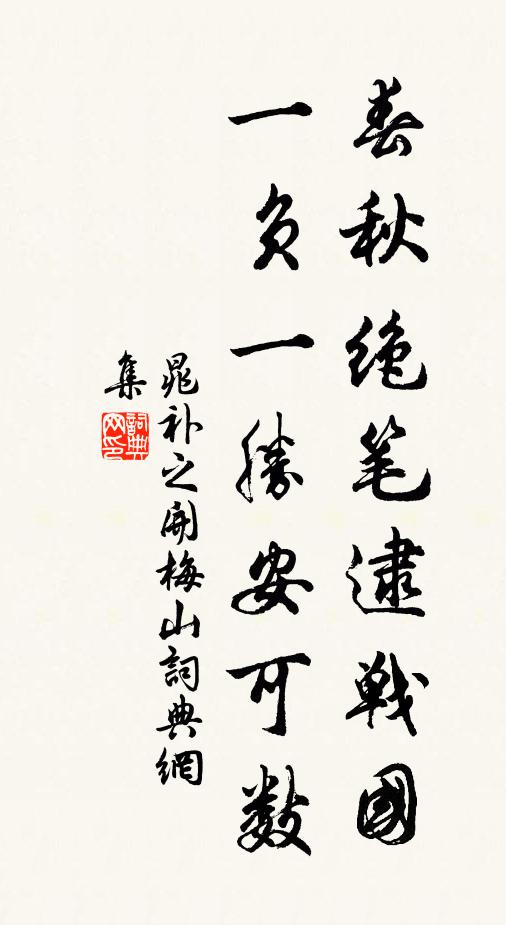 春秋绝笔逮戦國
一负一勝安可数
晁补之開梅山詞典網
集
詞典
网印